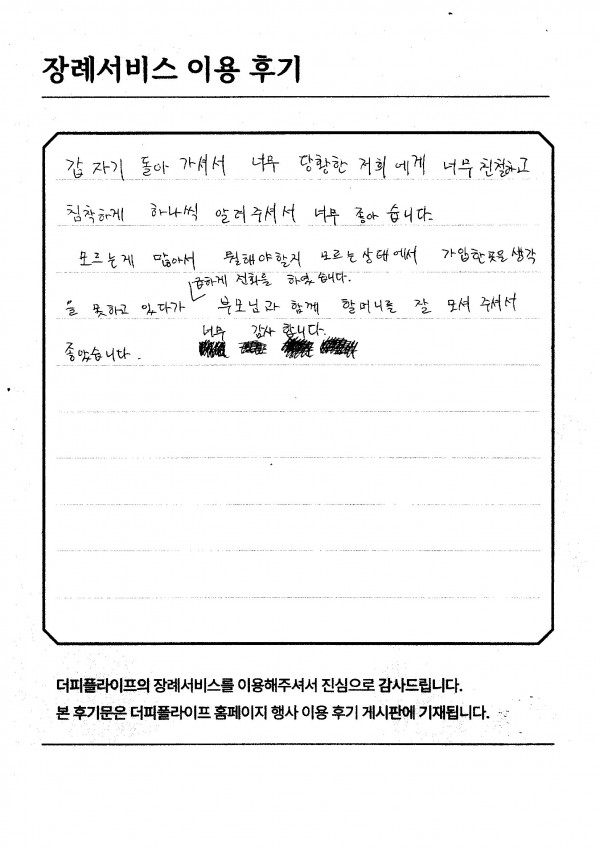 장례서비스 이용 후기
갑 자기 돌아 가셔서 너무 당황한 저희에게 너무 친절하고
침착하게 하나씩 알려주셔서 너무 좋아 습니다.
모르는게 많아서 뭘해야할지 모르는상태에서 가입한곳을생각
급하게 전화를 하였습니다.
을 못하고 있다가 부모님과 함께 할머니를 잘 모셔 주셔서
너무 감사 합니다.
좋았습니다.
더피플라이프의 장례서비스를 이용해주셔서 진심으로 감사드립니다.
본 후기문은 더피플라이프 홈페이지 행사 이용 후기 게시판에 기재됩니다.